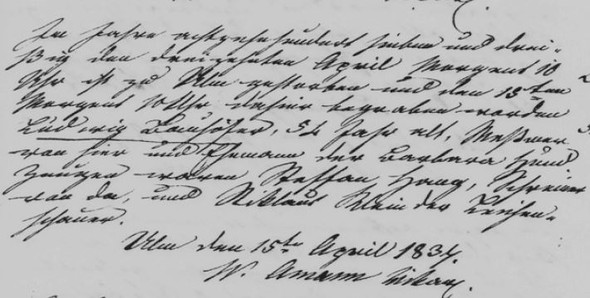 Im Jahre achtzehnhundert sieben und drei-
ßig den dreizehnten April Morgens 10
Uhr ist zu Ulm gestorben und den 15ten
Morgens 10 Uhr daher begraben worden
Ludwig Bauhöfer, 54 Jahr alt, Meßmer
von hier und Ehemann der Barbara Hund
Zeugen waren Steffan Haug, Schreiner
von da, und Niklaus Klein der Leichen-
schauer.
Ulm den 15ten April 1837.
W. Amann Vikar.